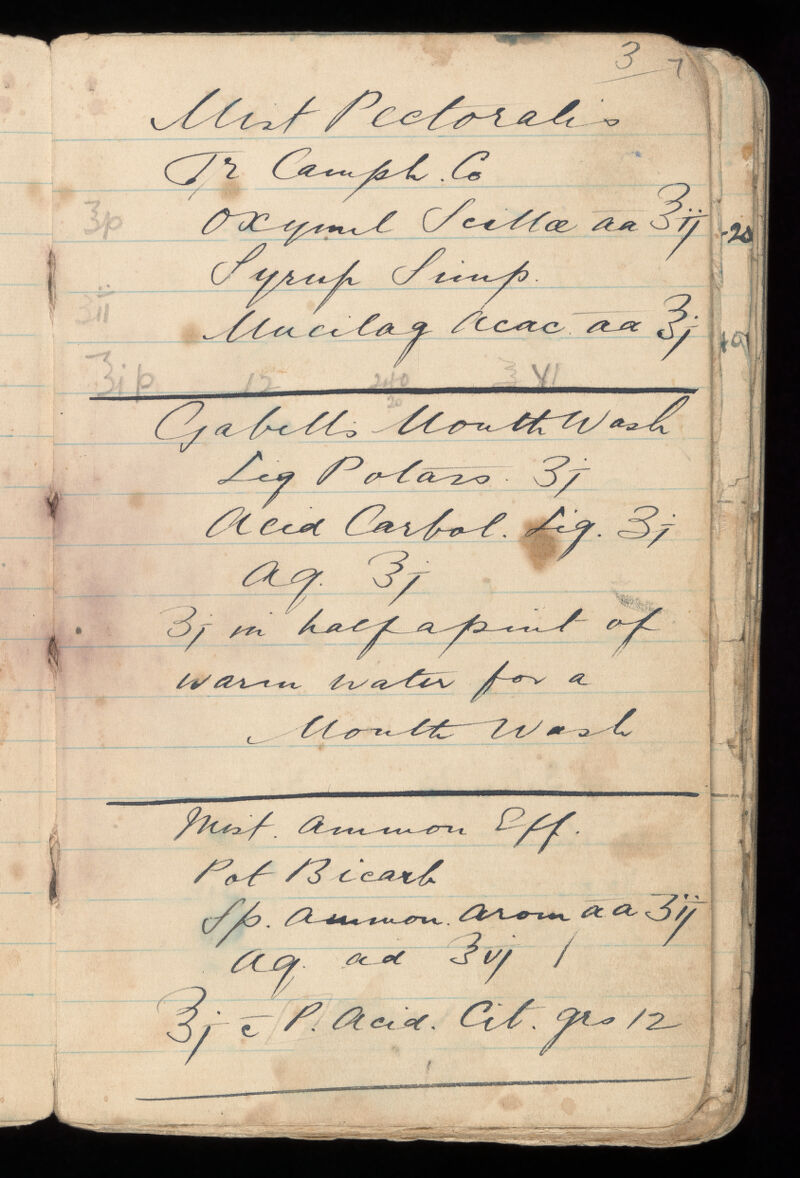 3 7
Mist Pectoralis
Tr Camph. Co
Oxymel Scillæ aa ʒiij
Syrup Simp.
Mucilag Acac. aa ℥j
ʒii
12 240 VI
20
Gabells Mouth Wash
Liq Potass. ʒj
Acid Carbol. Liq. ʒj
Aq. ℥j
ʒj in half a pint of
warm water for a
Mouth Wash
Mist. Ammon Eff.
Pot Bicarb
Sp. Ammon. Arom aa ʒiij
Aq. ad ℥vj /
℥j c̄ P. Acid. Cit. grs 12